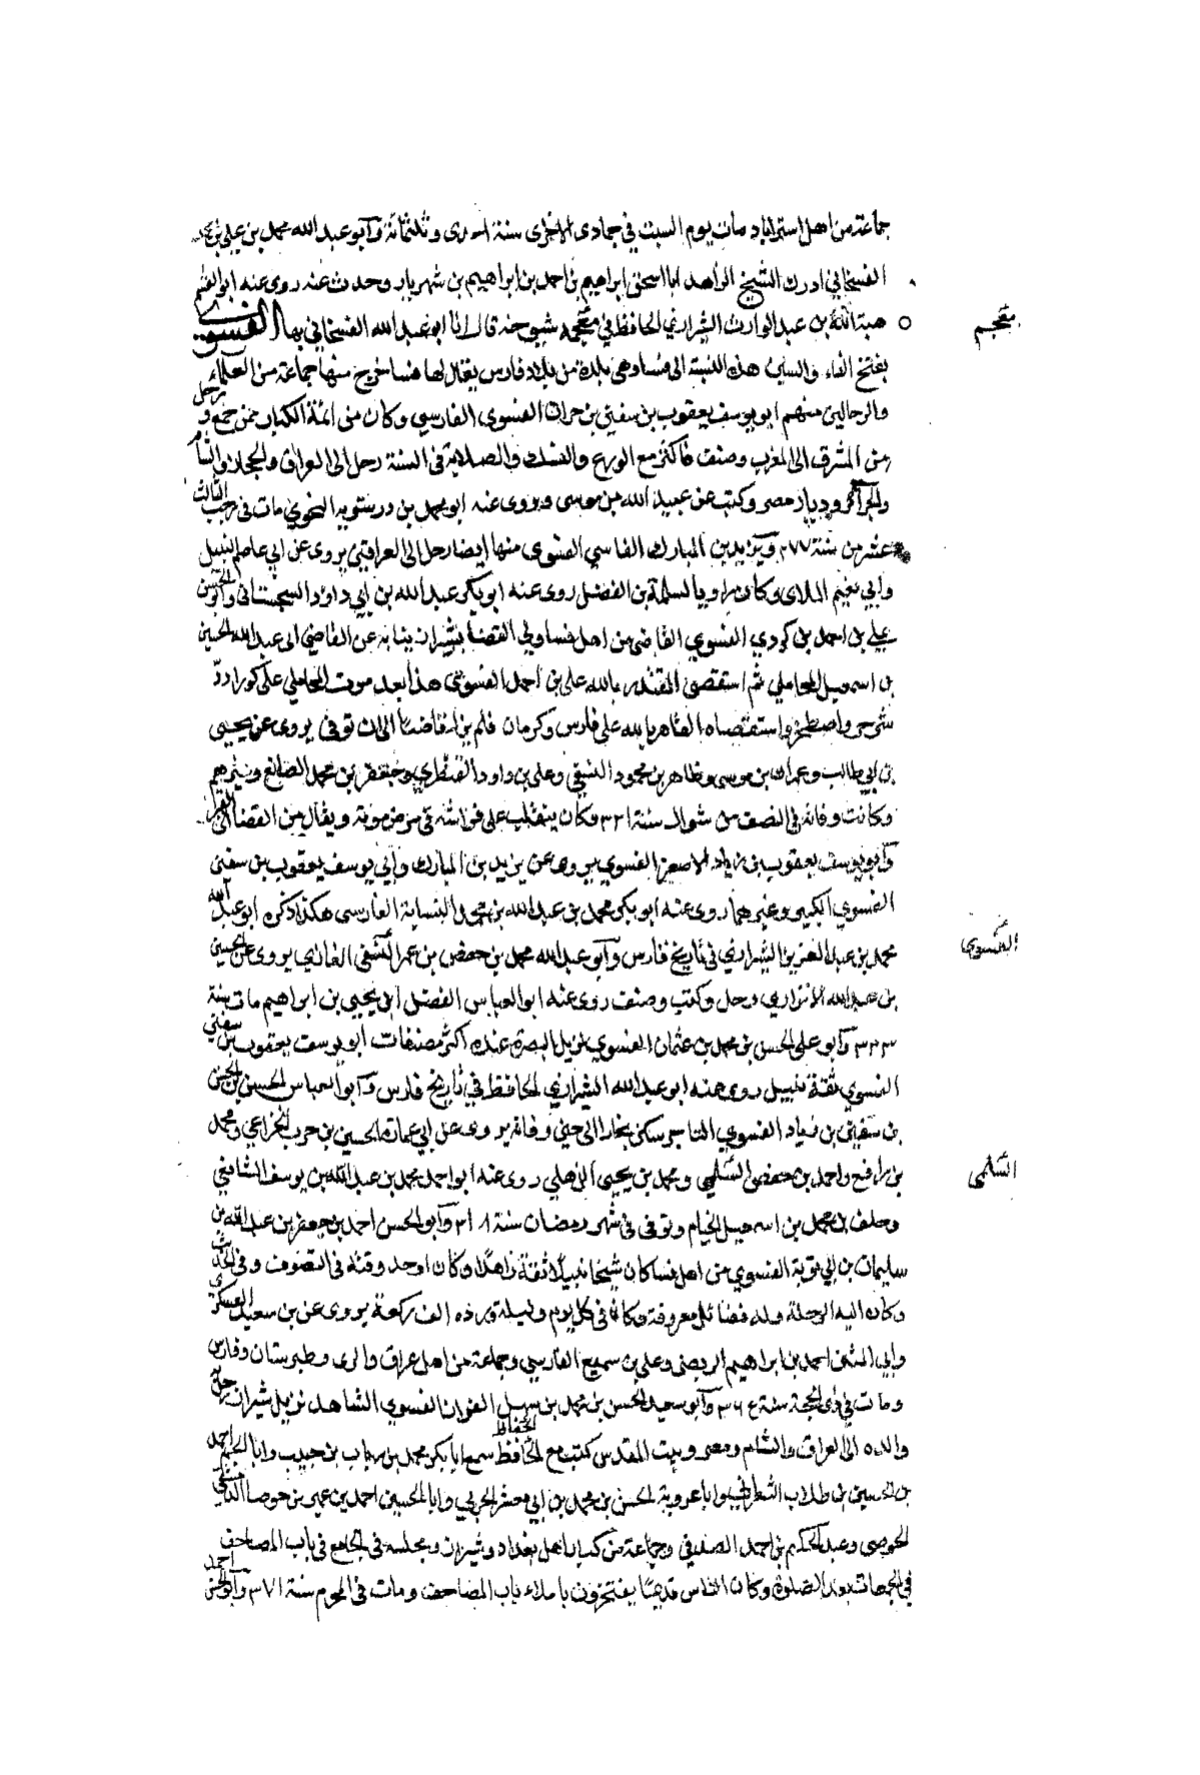 جماعة من اهل استراباد مات يوم السبت في جمادى الاخرى سنة احدى وثلثمائة وآبو عبد الله محمد بن علي بن محمد
الفسخاني ادرك الشيخ الزاهد ابا اسحق ابراهيم بن احمد بن ابراهيم بن شهريار وحدث عنه روى عنه ابو القسم
هبة الله بن عبد الوارث الشيرازي الحافظ في معجم شيوخه قال انا ابو عبد الله الفسخاني بها الفسوى
معجم
بفتح الفاء والسين هذه النسبة الى فسا وهي بلدة من بلاد فارس يقال لها فسا خرج منها جماعة من العلماء
والرحالين منهم ابو يوسف يعقوب بن سفين بن جوان الفسوى الفارسي وكان من ائمة الكبار ممن جمع ورحل
من المشرق الى المغرب وصنف فاكثر مع الورع والنسك والصلابة في السنة رحل الى العراق والحجاز والشام
والجزائر وديار مصر وكتب عن عبيد الله بن موسى وروى عنه ابو محمد بن درستويه النحوي مات في رجب الثالث
عشر من سنة ٢٧٧ ويزيد بن المبارك الفاسي الفسوى منها ايضا رحل الى العراقين يروى عن ابي عاصم النبيل
وابي نعيم الملاى وكان راويا لسلمة بن الفضل روى عنه ابو بكر عبد الله بن ابي داود السجستاني وابو الحسن
علي بن احمد بن كردي الفسوي القاضي من اهل فسا ولي القضا بشيراز نيابة عن القاضي ابى عبد الله الحسين
بن اسمعيل المحاملي ثم استقضى المقتدر بالله على بن احمد الفسوى هذا بعد موت المحاملي على كور اردّ
شير واصطخر واستقضاه القاهر بالله على فارس وكرمان فلم يزل قاضيًا الى ان توفى يروى عن يحيى
بن ابي طالب وعمران بن موسى وطاهر بن محمود النسفي وعلى بن داود القنطري وجعفر بن محمد الصائغ وغيرهم
وكانت وفاته في النصف من شوال سنة ٣٢١ وكان يتقلب على فراشه في مرض موته ويقال من القضا الى القبر
وآبو يوسف يعقوب بن زياد الاصغر الفسوي يروى عن يزيد بن المبارك وابي يوسف يعقوب بن سفين
الفسوي الكبير وغيرهما روى عنه ابو بكر محمد بن عبد الله بن محمد النساية الفارسى هكذا ذكره ابو عبد الله
محمد بن عبد العزيز الشيرازي في تاريخ فارس وآبو عبد الله محمد بن حفص بن عمر النسفي الغازي يروى عن الحسين
الفسوى
بن عبد الله الابزاري رحل وكتب وصنف روى عنه ابو العباس الفضل بن يحيى بن ابراهيم مات سنة
٣٣٣ وآبو على الحسن بن محمد بن عثمان الفسوي نزيل البصرة عنده اكثر مصنفات ابو يوسف يعقوب بن سفين
الفسوي ثقة نبيل روى عنه ابو عبد الله الشيرازي الحافظ في تاريخ فارس وآبو العباس الحسين بن الحسن
بن سفين بن زياد الفسوي التاجر سكن بخارا الى حين وفاته يروى عن ابي عمار الحسين بن حريث الخزاعي ومحمد
بن رافع واحمد بن حفص السُّلَمى ومحمد بن يحيى الذهلي روى عنه ابو احمد محمد بن عبد الله بن يوسف الشافعي
السُّلَمى
وخلف بن محمد بن اسمعيل الخيام وتوفى في شهر رمضان سنة ٣١٨ وآبو الحسن احمد بن جعفر بن عبد الله بن
سليمان بن ابي توبة الفسوي من اهل فسا كان شيخا نبيلًا ثقة زاهدًا وكان اوحد وقته في التصوف وفي الحديث
وكان اليه الرحلة وله فضائل معروفة وكان في كل يوم وليلة ورده الف ركعة يروى عن بن سعيد العسكري
وابي المثنى احمد بن ابراهيم الربضى وعلى بن سميع الفارسي وجماعة من اهل عراق والرى وطبرستان وفارس
ومات في ذى الحجة سنة ٣٦٤ وآبو سعيد الحسن بن محمد بن سهل الفسوي الشاهد نزيل شيراز رحل به
والده الى العراق والشام ومصر وبيت المقدس كتب مع الحفاظ الحافظ سمع ابا بكر محمد بن حبيب وابا الجهم احمد
بن الحسين بن طلاب المشغرائي وابا عروبة الحسن بن محمد بن ابي معشر الحربي وابا الحسين احمد بن عمير بن جوصا الدمشقي
الحوصى وعبد الحكيم بن احمد الصدفي وجماعة من كبار اهل بغداد وشيراز ومجلسه في الجامع في باب المصاحف
في الجمعات بعد الصلوة وكان الناس قديمًا يفتخرون باملاء باب المصاحف ومات في المحرم سنة ٣٧١ وآبو الحسن احمد